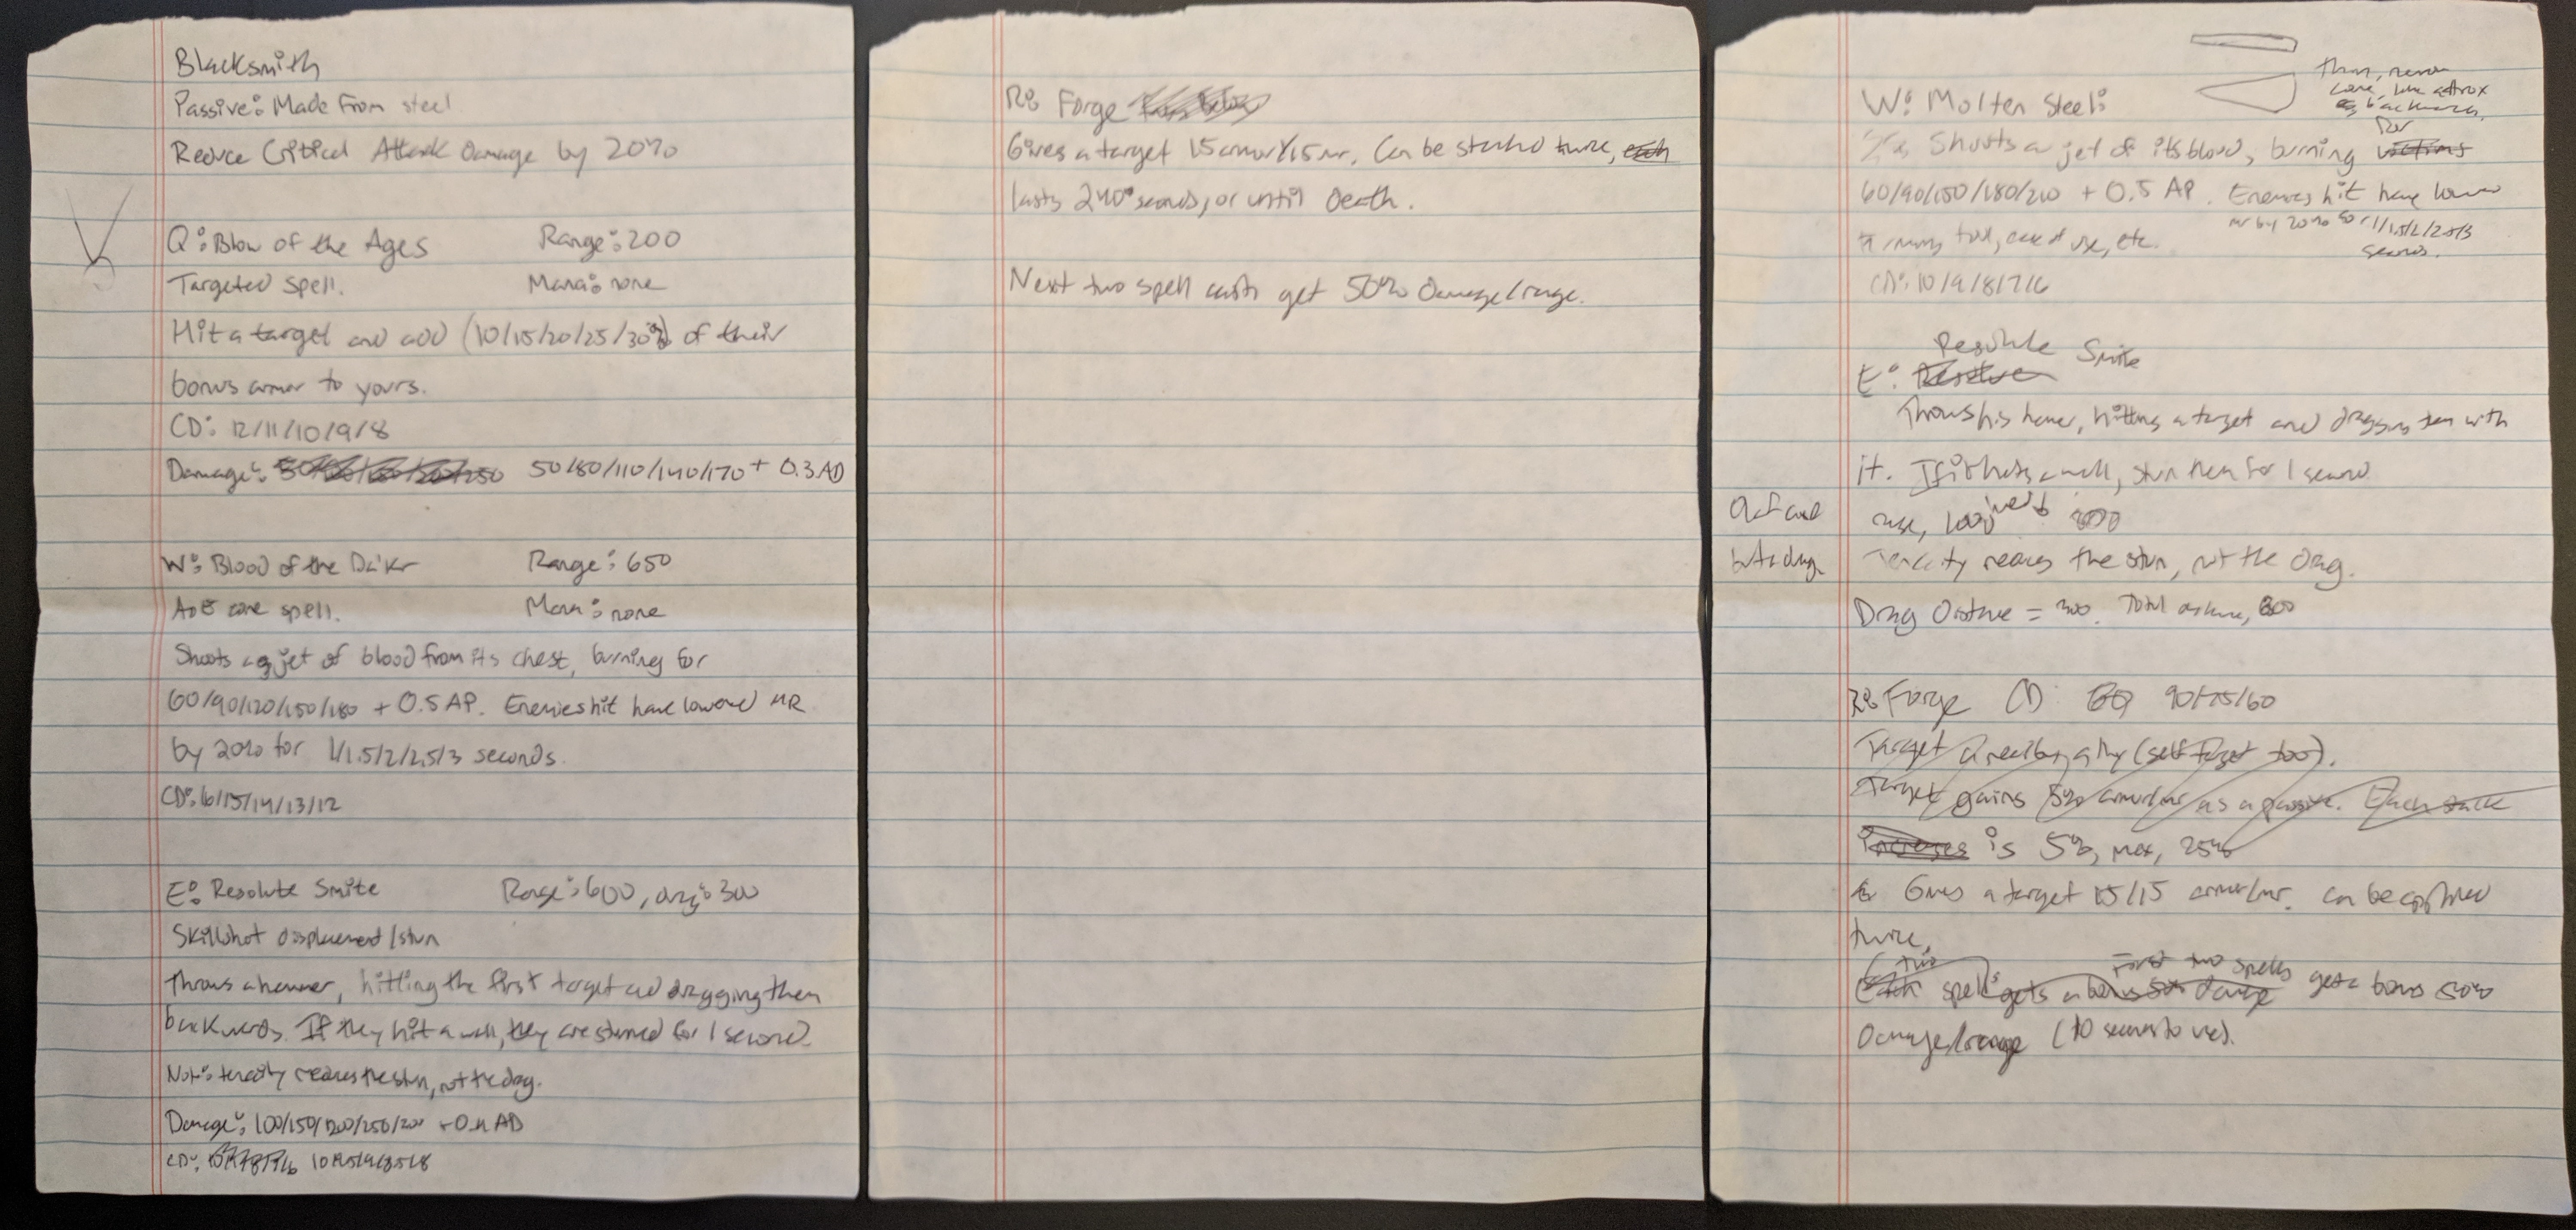 Blacksmith
Passive: Made From steel
Reduce Critical Attack Damage by 20%
Q: Blow of the Ages Range: 200
Targeted Spell. Mana: none
Hit a target and add (10/15/20/25/30%) of their
bonus armor to yours.
CD: 12/11/10/9/8
Damage: 50/80/110/140/170 + 0.3 AD
W: Blood of the Range: 650
AoE cone spell. Mana: none
Shoots a jet of blood from its chest, burning for
60/90/120/150/180 + 0.5 AP. Enemies hit have lowered MR
by 20% for 1/1.5/2/2.5/3 seconds.
CD: 16/15/14/13/12
E: Resolute Smite Range: 600, drag: 300
Skillshot displacement/stun
Throws a hammer, hitting the first target and dragging them
backwards. If they hit a wall, they are stunned for 1 second.
Note: tenacity reduces the stun, not the drag.
Damage: 100/150/200/250/ + 0.4 AD
CD: 10/9.5/9/8.5/8
R: Forge
Gives a target 15 armor/15 mr. Can be stacked twice, each
lasts 240 seconds, or until Death.
Next two spell casts get 50% Damage/range.
Then, 
cone, like aatrox
backwards.
W: Molten Steel:
Shoots a jet of its blood, burning victims for
60/90/150/180/210 + 0.5 AP. Enemies hit have lower
mr by 20% for 1/1.5/2/2.5/3
seconds.
CD: 10/9/8/7/6
Resolute Smite
E: Resolve
Throws his hammer, hitting a target and dragging them with
it. If it hits a wall, stun them for 1 second
1000 800
Tenacity reduces the stun, not the Drag.
Drag Distance = 300. Total distance, 800
R: Forge CD: 90/75/60
Target a nearby ally (self target too).
Target gains 5% armor/mr as a passive. Each stack
increases is 5%, max, 25%
Gives a target 15/15 armor/mr. can be applied
twice.
Each two spells gets a bonus 50% damage First two spells get a bonus 50%
Damage/range (10 seconds to use).